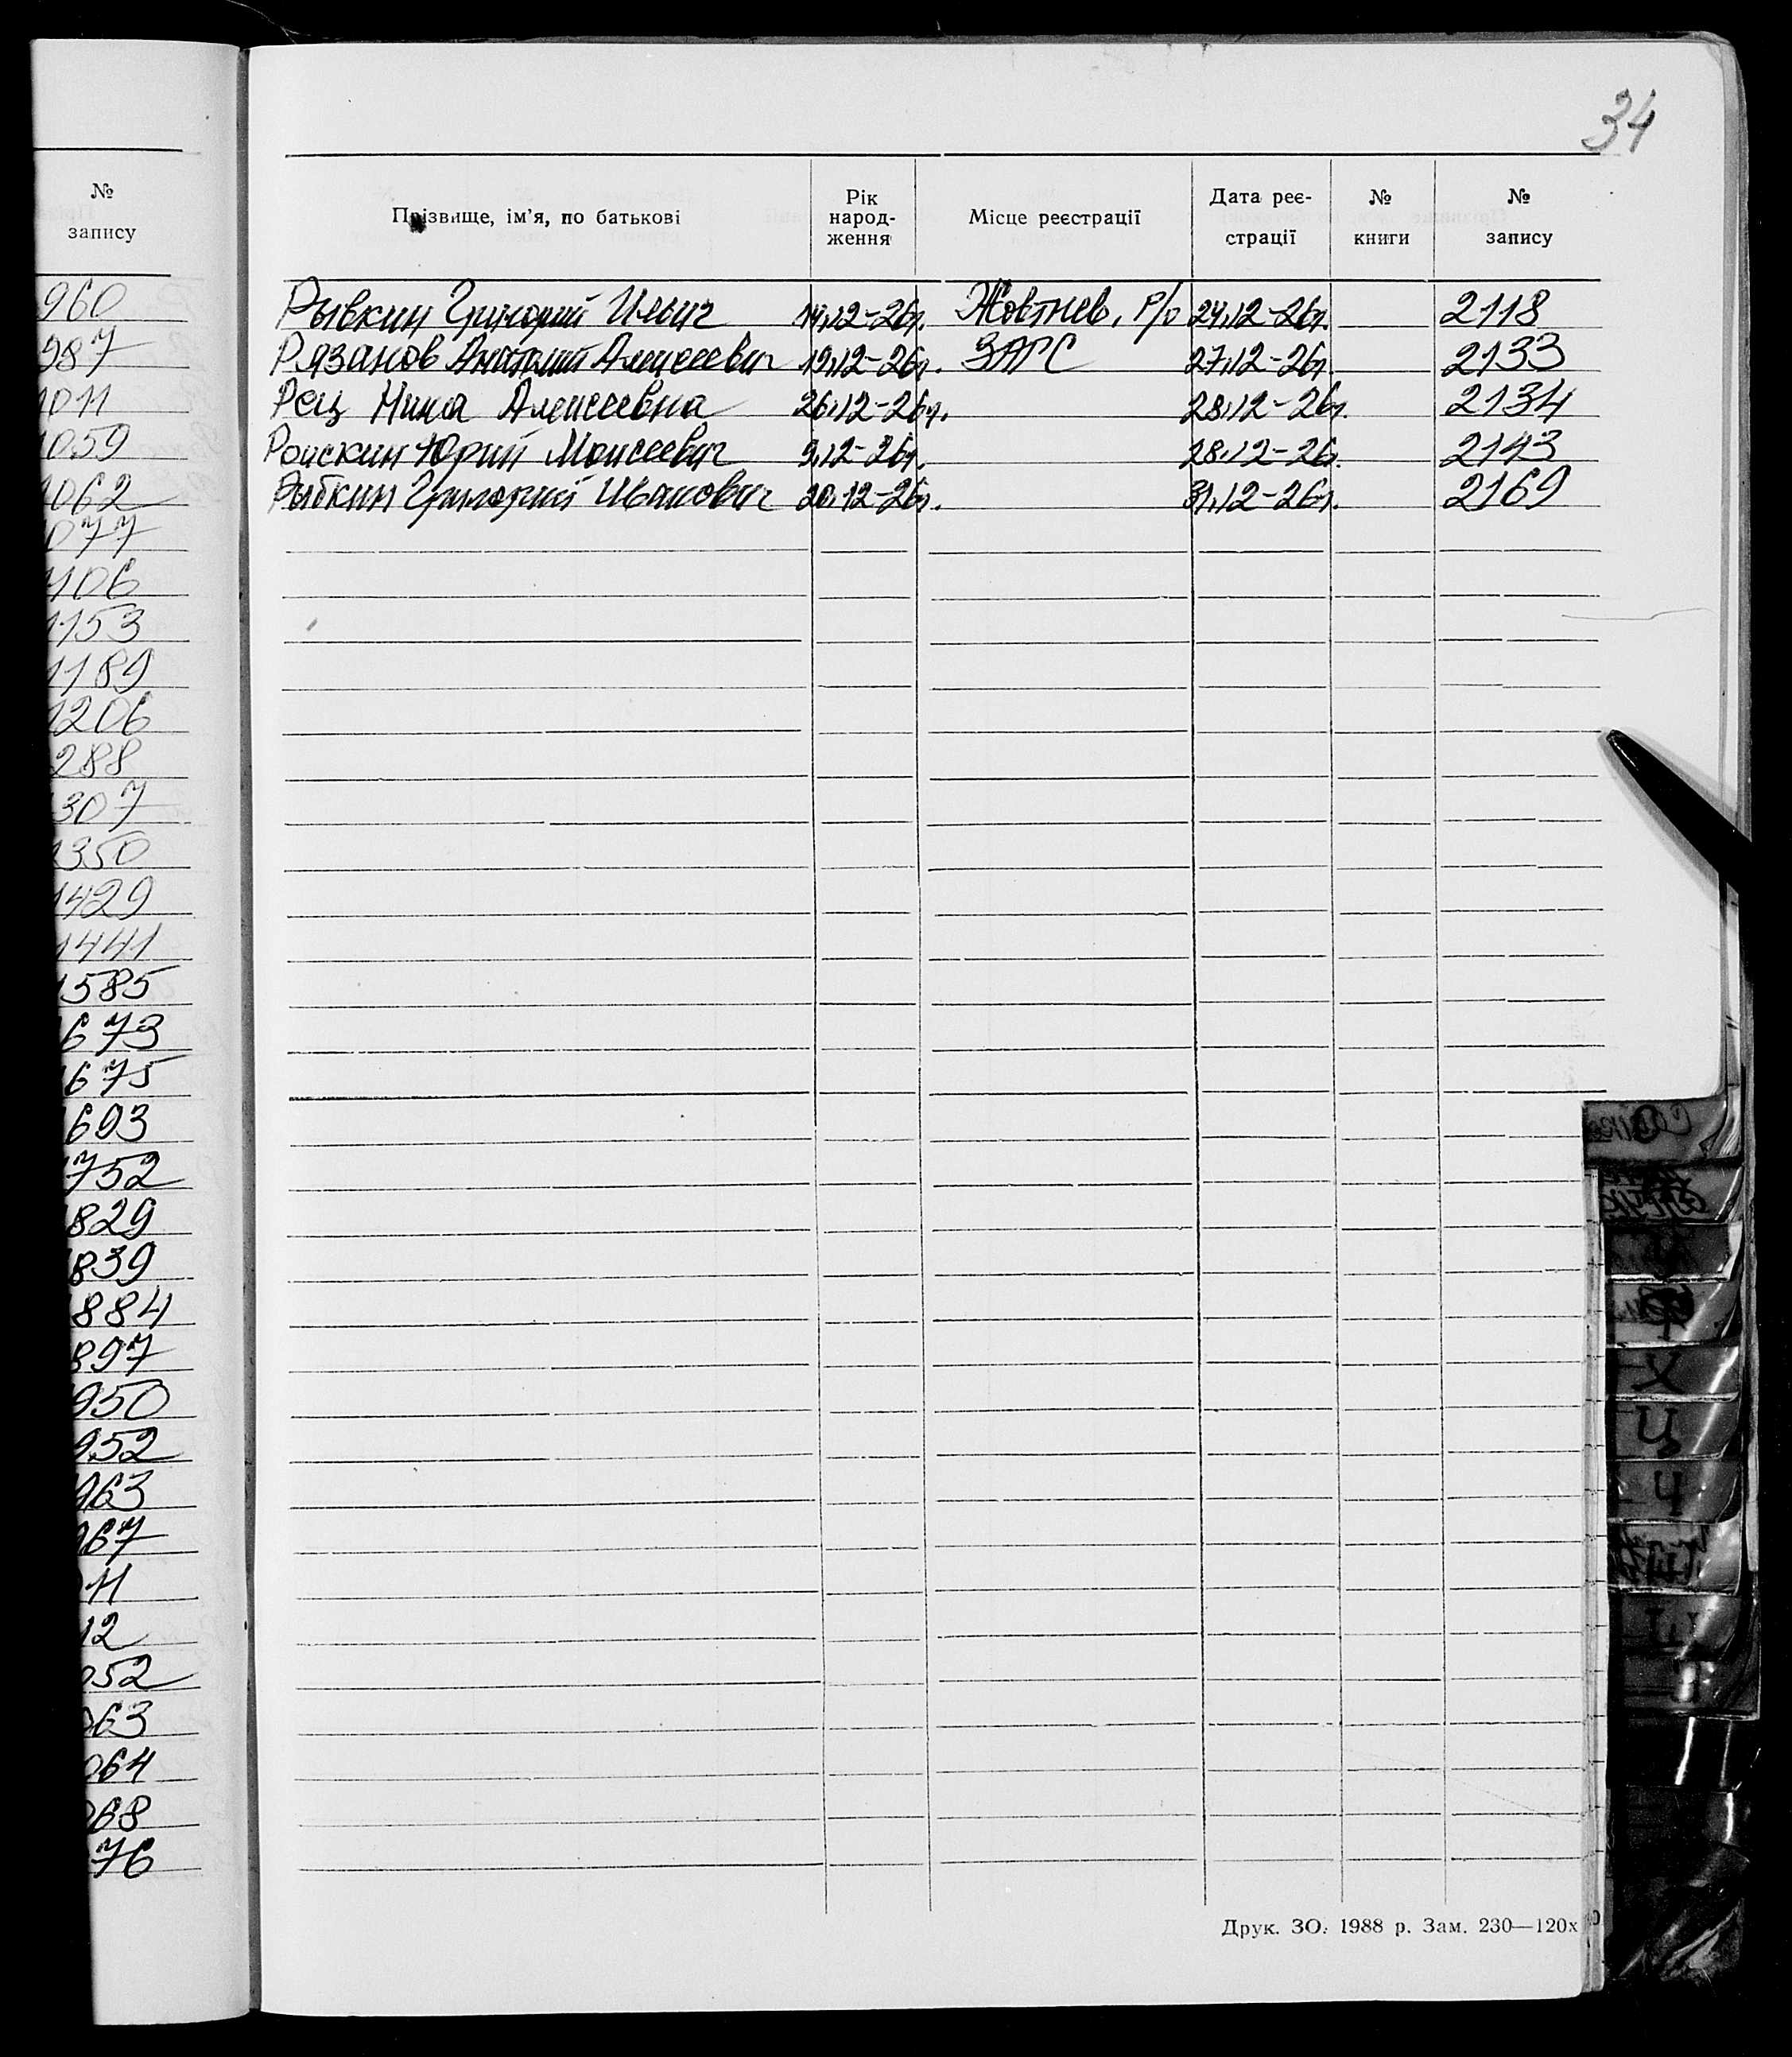 №
запису
960
987
1011
1059
1062
1077
1106
1153
1189
1206
288
307
1350
1429
1441
1585
1673
1675
1693
1752
1829
1839
1884
1897
1950
1952
1963
1967
11
12
052
063
064
068
76
34
Прізвище, ім'я, по батькові Рік народження Місце реєстрації Дата реєстрації № книги № запису
Рывкин Григорий Ильич 14.12-26г. Жовтнев. р/о 24.12-26г. 2118
Рязанов Анатолий Алексеевич 19.12-26г. ЗАГС 27.12-26г. 2133
Рец Нина Алексеевна 26.12-26г. 28.12-26г. 2134
Роискин Юрий Моисеевич 9.12-26г. 28.12-26г. 2143
Рыбкин Григорий Иванович 20.12-26г. 31.12-26г. 2169
Друк. ЗО. 1988 р. Зам. 230—120х
Х
Ц
Ч